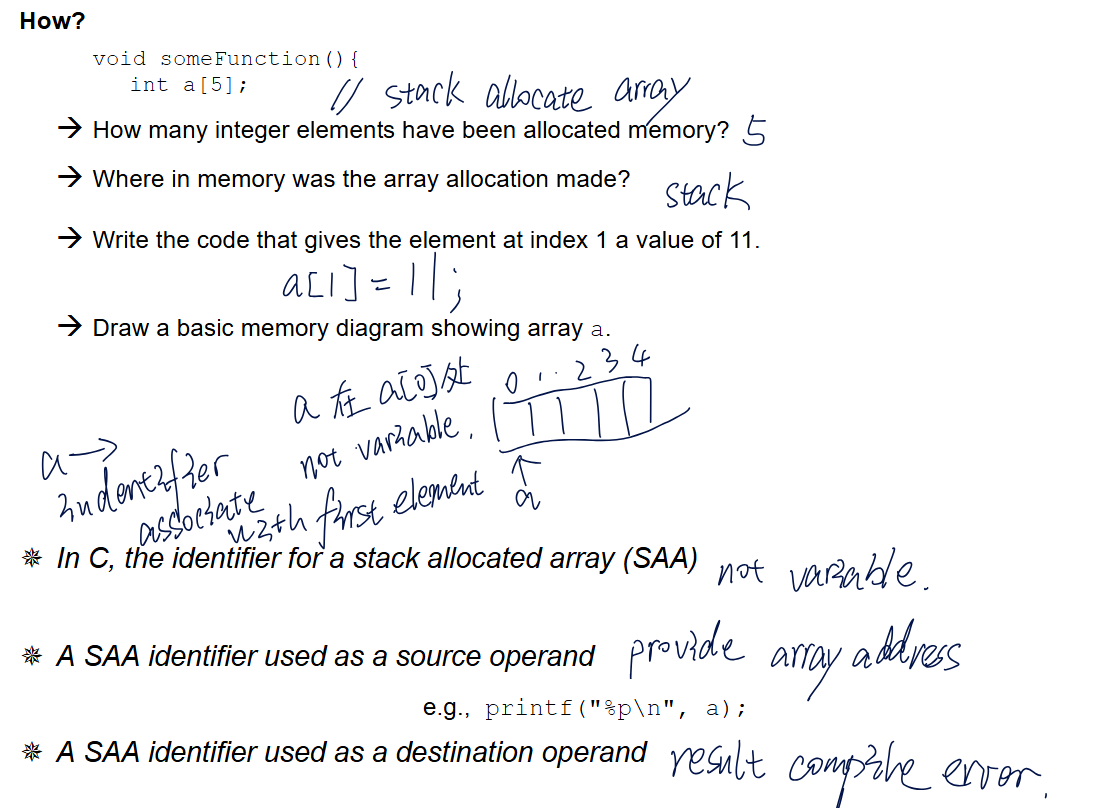 How?
void someFunction(){
int a[5]; // stack allocate array
→ How many integer elements have been allocated memory? 5
→ Where in memory was the array allocation made? stack
→ Write the code that gives the element at index 1 a value of 11.
a[1] = 11;
→ Draw a basic memory diagram showing array a.
0 1 .. 2 3 4
a 在 a[0]处
not variable.
a →
indentifier
associate
with first element
a
❋ In C, the identifier for a stack allocated array (SAA) not variable.
❋ A SAA identifier used as a source operand provide array address
e.g., printf("%p\n", a);
❋ A SAA identifier used as a destination operand result compile error.